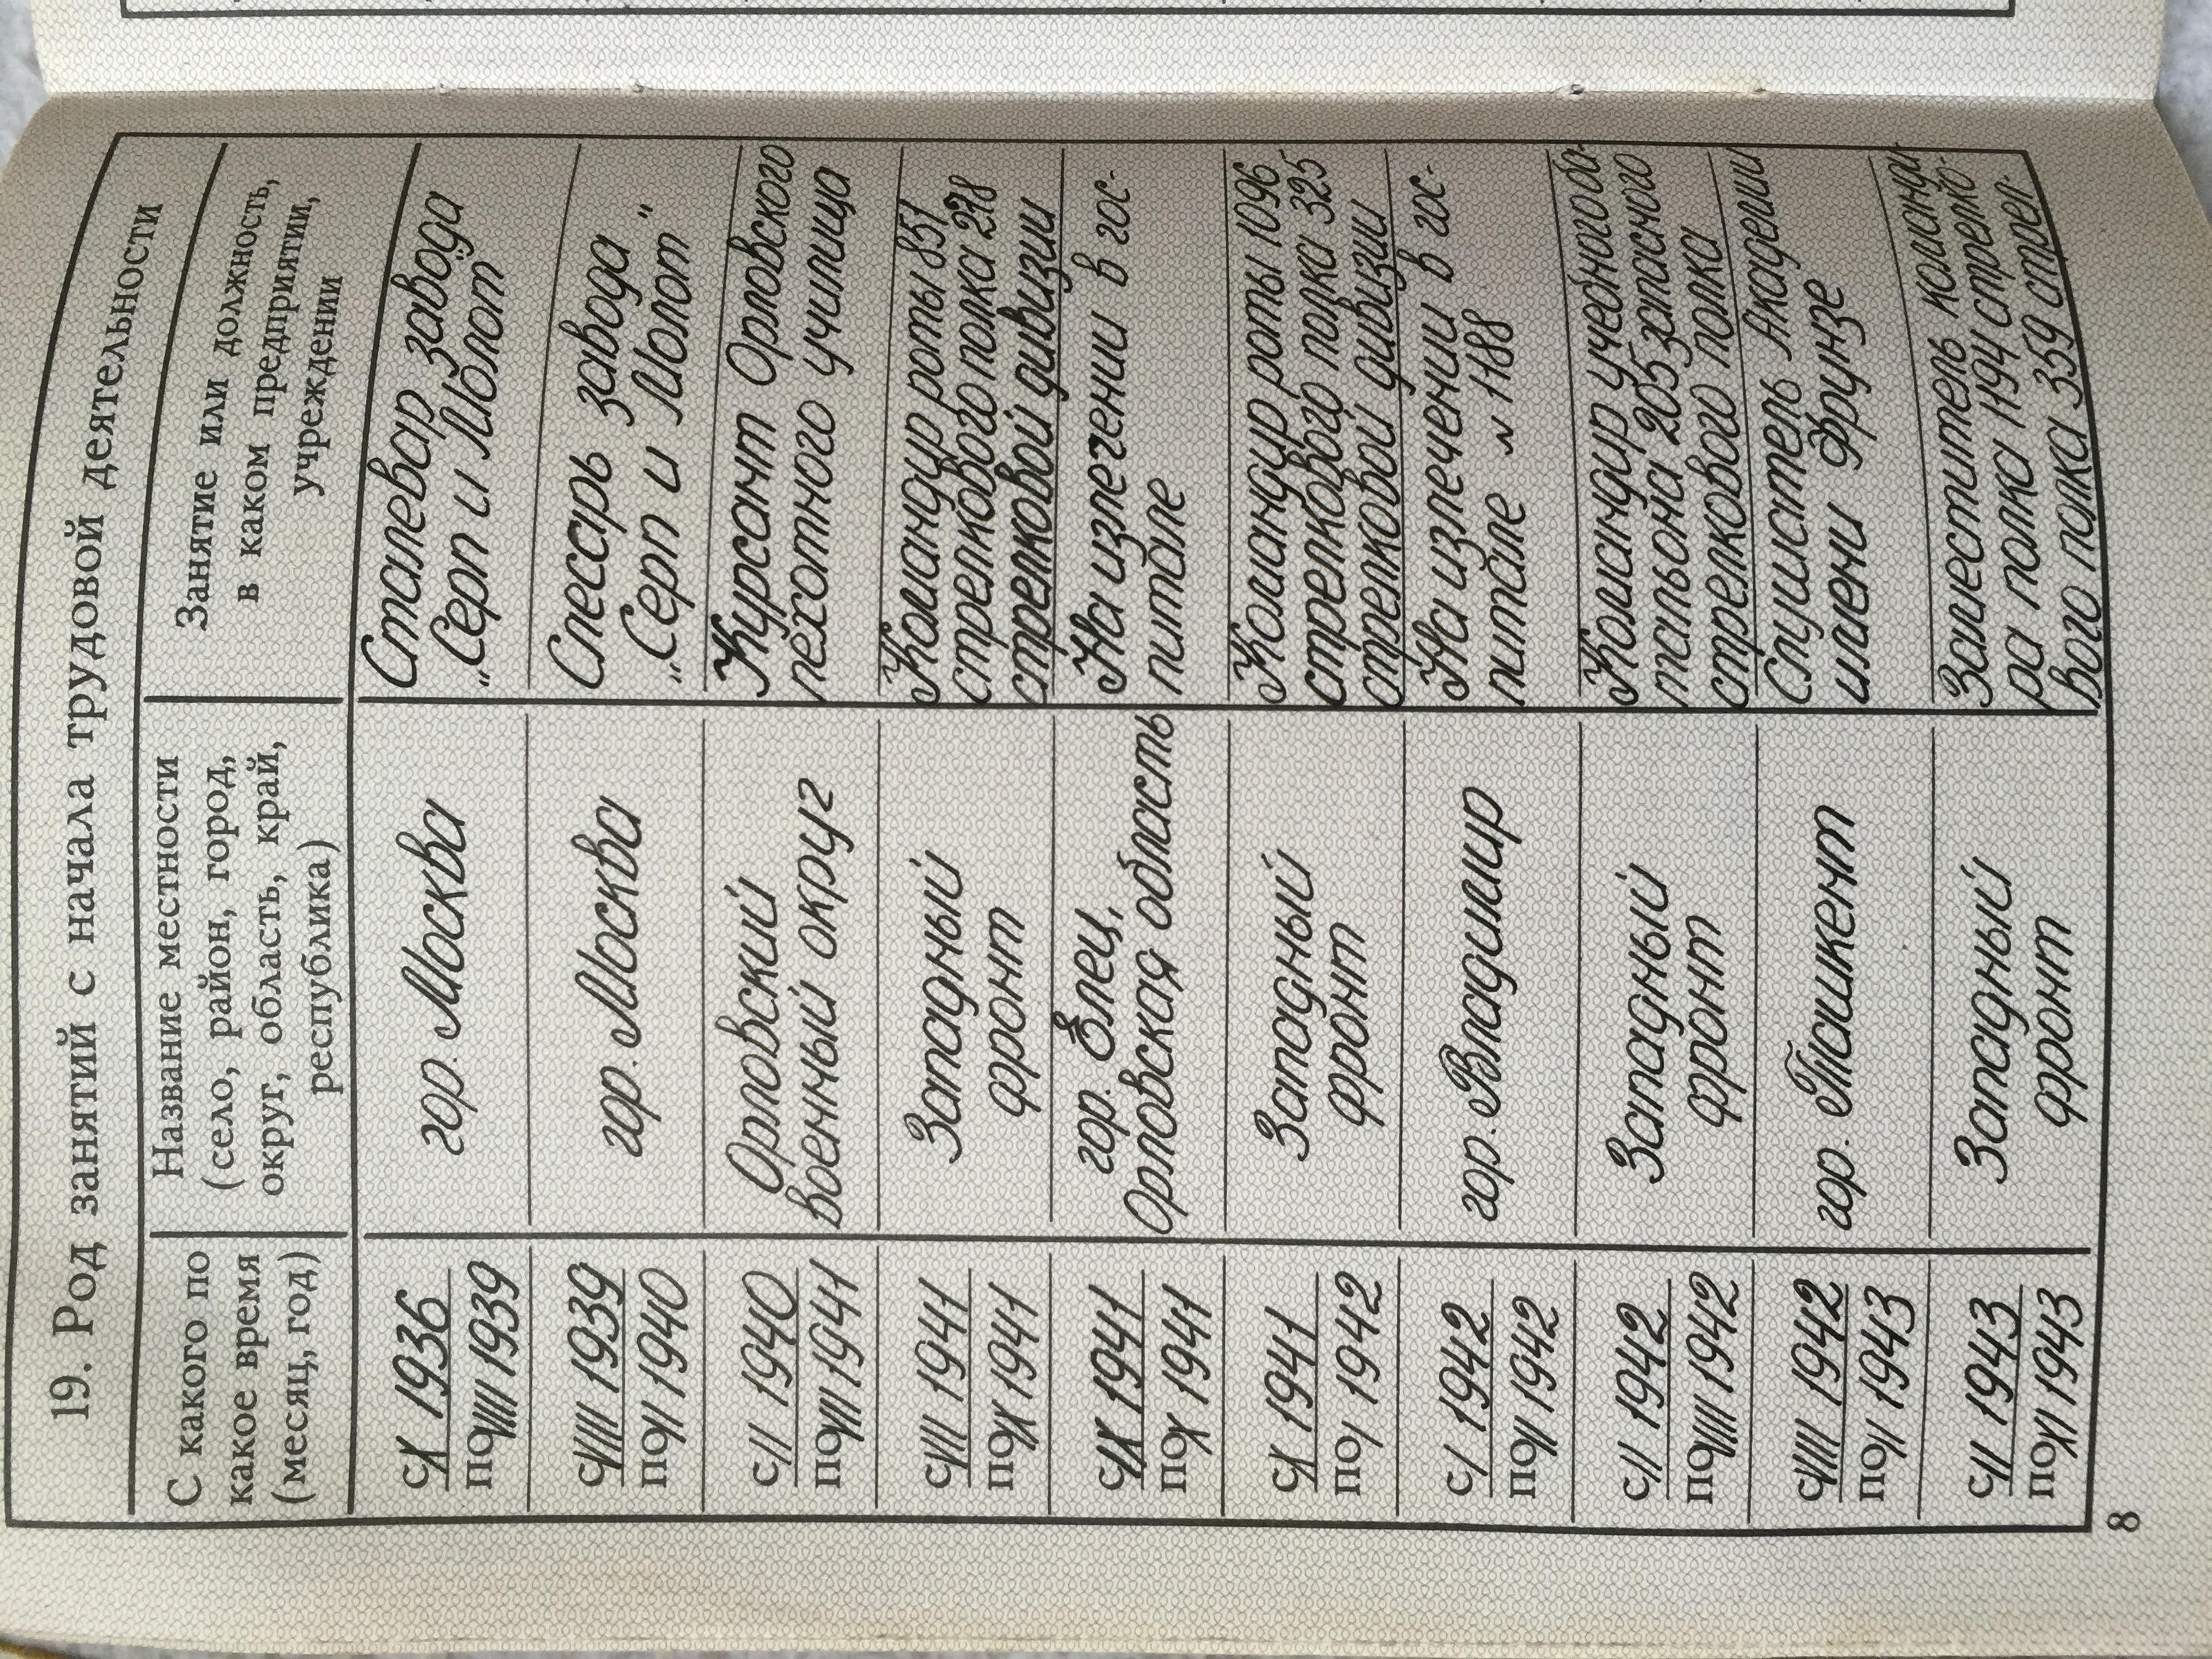 19. Род занятий с начала трудовой деятельности
С какого по
какое время
(месяц, год)
Название местности
(село, район, город,
округ, область, край,
республика)
Занятие или должность,
в каком предприятии,
учреждении
с X 1936
по VIII 1939
гор. Москва
Сталевар завода
„Серп и Молот"
с VIII 1939
по II 1940
гор. Москва
Слесарь завода
„Серп и Молот"
с II 1940
по VII 1941
Орловский
военный округ
Курсант Орловского
пехотного училища
с VII 1941
по IX 1941
Западный
фронт
Командир роты 851
стрелкового полка 278
стрелковой дивизии
с IX 1941
по X 1941
гор. Елец,
Орловская область
На излечении в гос-
питале
с X 1941
по I 1942
Западный
фронт
Командир роты 1096
стрелкового полка 325
стрелковой дивизии
с I 1942
по II 1942
гор. Владимир
На излечении в гос-
питале № 1188
с II 1942
по VIII 1942
Западный
фронт
Командир учебного ба-
тальона 205 запасного
стрелкового полка
с VIII 1942
по II 1943
гор. Ташкент
Слушатель Академии
имени Фрунзе
с II 1943
по XI 1943
Западный
фронт
Заместитель команди-
ра полка 1194 стрелко-
вого полка 359 стрел.
8